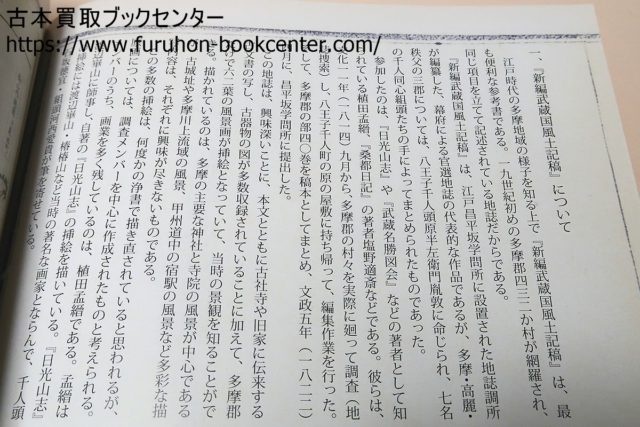 古本買取ブックセンター
https://www.furuhon-bookcenter.com/
一、『新編武蔵国風土記稿』について
江戸時代の多摩地域の様子を知る上で『新編武蔵国風土記稿』は、最
も便利な参考書である。一九世紀初めの多摩郡四三二か村が網羅され、
同じ項目を立てて記述されている地誌だからである。
『新編武蔵国風土記稿』は、江戸昌平坂学問所に設置された地誌調所
が編纂した、幕府による官選地誌の代表的な作品であるが、多摩・高麗・
秩父の三郡については、八王子千人頭原半左衛門胤敦に命じられ、七名
の千人同心組頭たちの手によってまとめられたものであった。
参加したのは、『日光山志』や『武蔵名勝図会』などの著者として知
れている植田孟縉、『桑都日記』の著者塩野適斎などである。彼らは、
化一一年（一八一四）九月から、多摩郡の村々を実際に廻って調査（地
捜索）し、八王子千人町の原の屋敷に持ち帰って、編集作業を行った。
して、多摩郡の部四〇巻を稿本としてまとめ、文政五年（一八二二）
月に、昌平坂学問所に提出した。
この地誌は、興味深いことに、本文とともに古社寺や旧家に伝来する
文書の写しや、古器物の図が多数収録されていることに加えて、多摩郡
けで六二葉の風景画が挿絵となっていて、当時の景観を知ることがで
る。描かれているのは、多摩の主要な神社と寺院の風景が中心である
古城址や多摩川上流域の風景、甲州道中の宿駅の風景など多彩な描
内容は、それぞれに興味が尽きないものである。
の多数の挿絵は、何度かの浄書で描き直されていると思われるが、
画については、調査メンバーを中心に作成されたものと考えられる。
ンバーのうち、画業を多く残しているのは、植田孟縉である。孟縉は
辺崋山に師事し、自著の『日光山志』の挿絵を描いている。『日光山志』
挿絵には渡辺崋山・椿椿山など当時の著名な画家とならんで、千人頭
・組頭河西愛貴が筆を寄せている。